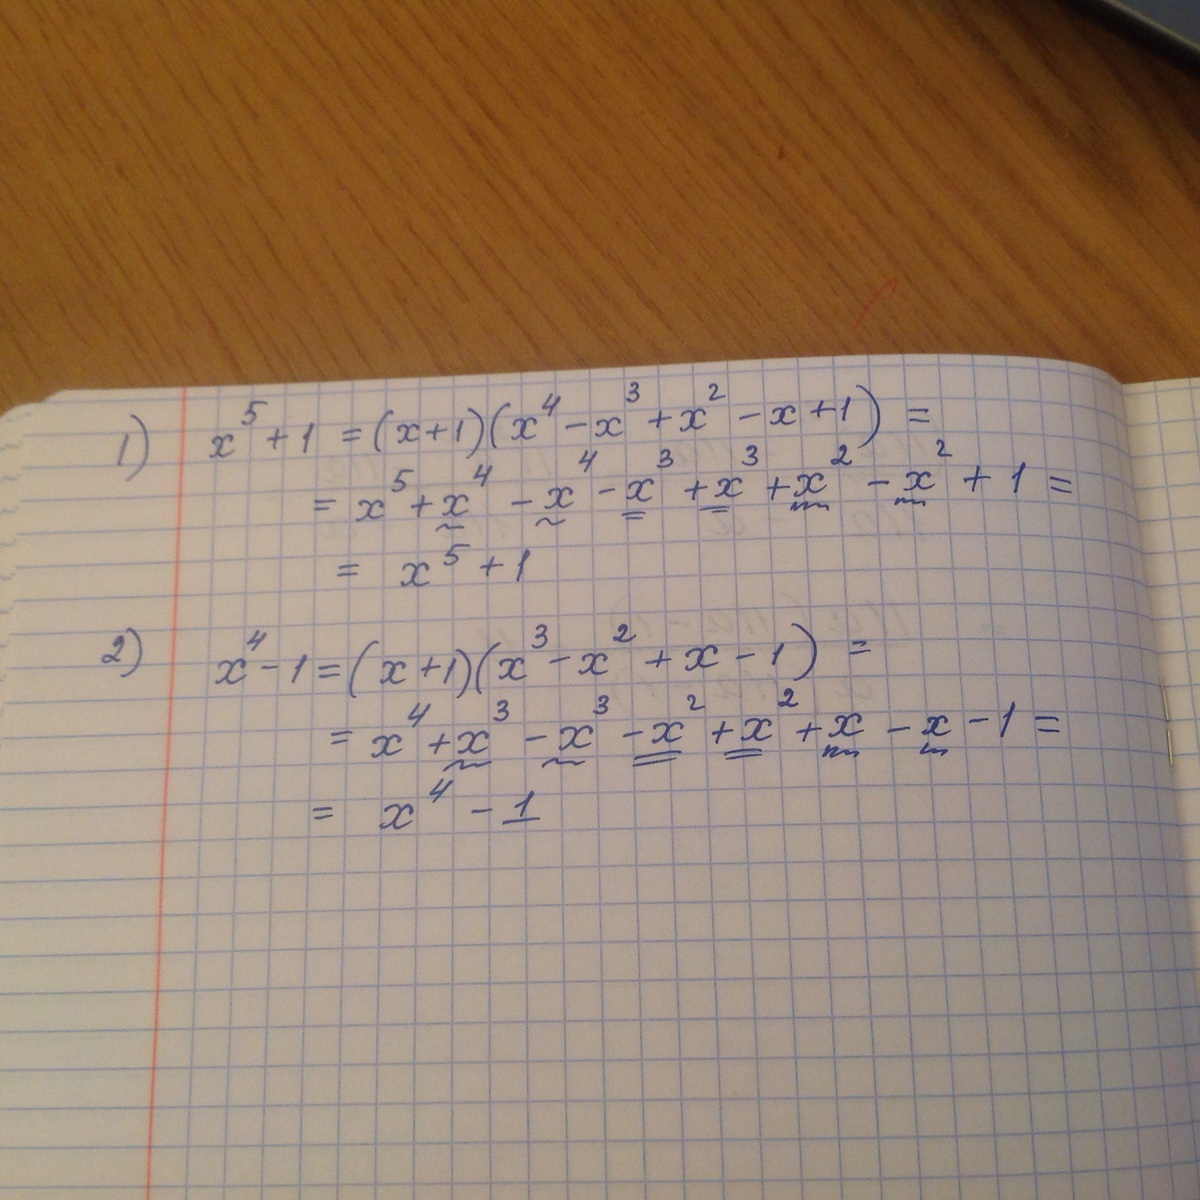 1) x⁵ + 1 = (x+1)(x⁴ - x³ + x² - x + 1) =
= x⁵ + x⁴ - x⁴ - x³ + x³ + x² - x² + 1 =
= x⁵ + 1
2) x⁴ - 1 = (x+1)(x³ - x² + x - 1) =
= x⁴ + x³ - x³ - x² + x² + x - x - 1 =
= x⁴ - 1